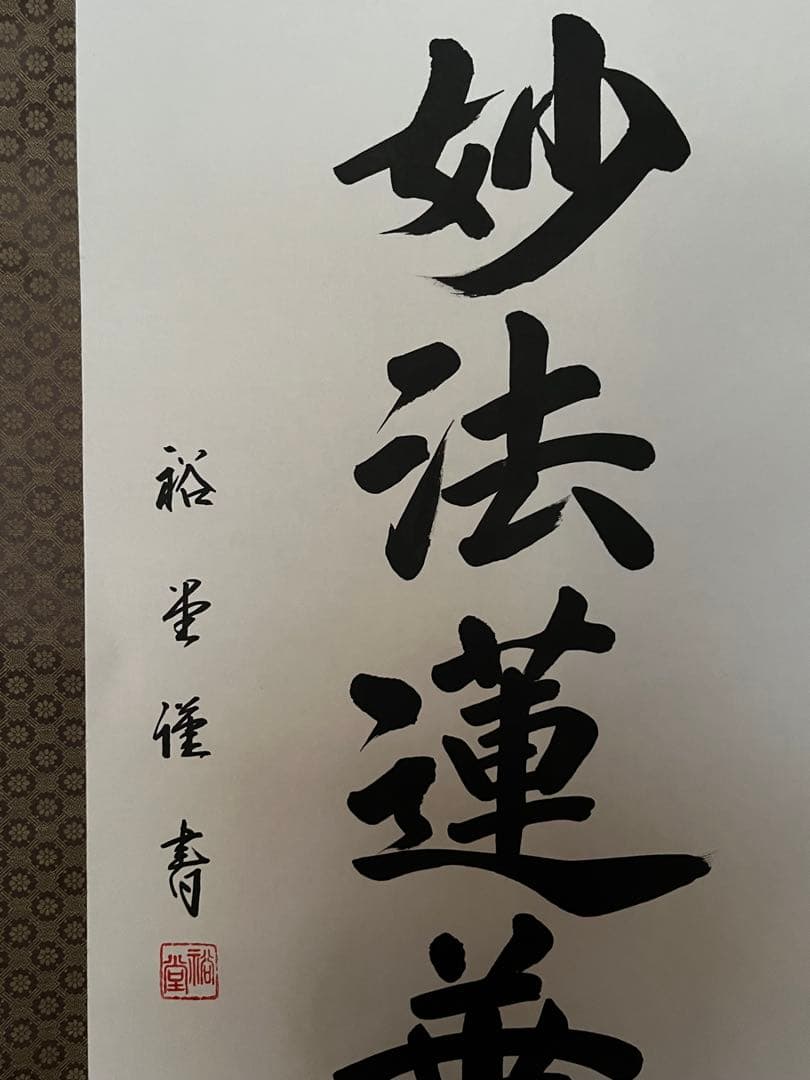 妙法蓮華
裕堂謹書
裕堂